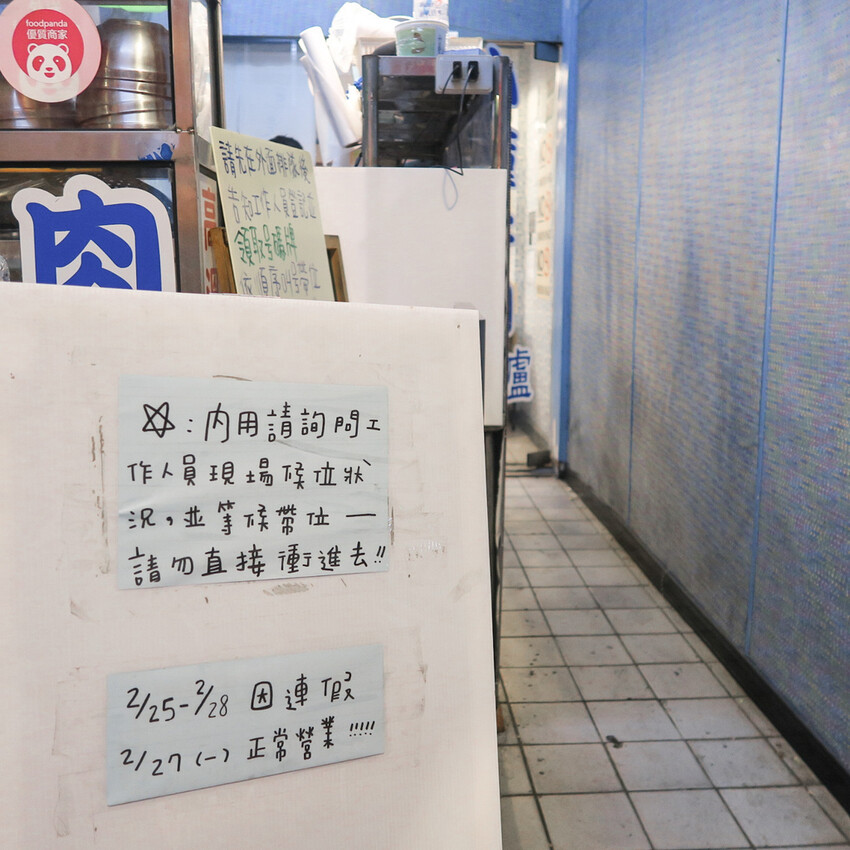 foodpanda
優質商家
肉
請先在外面排隊後
告知工作人員登記並
領取号碼牌
依順序叫号帶位
盧
☆:內用請詢問工
作人員現場候位狀
況,並等候帶位一
請勿直接衝進去!!
2/25-2/28 因連假
2/27(一)正常營業!!!!!